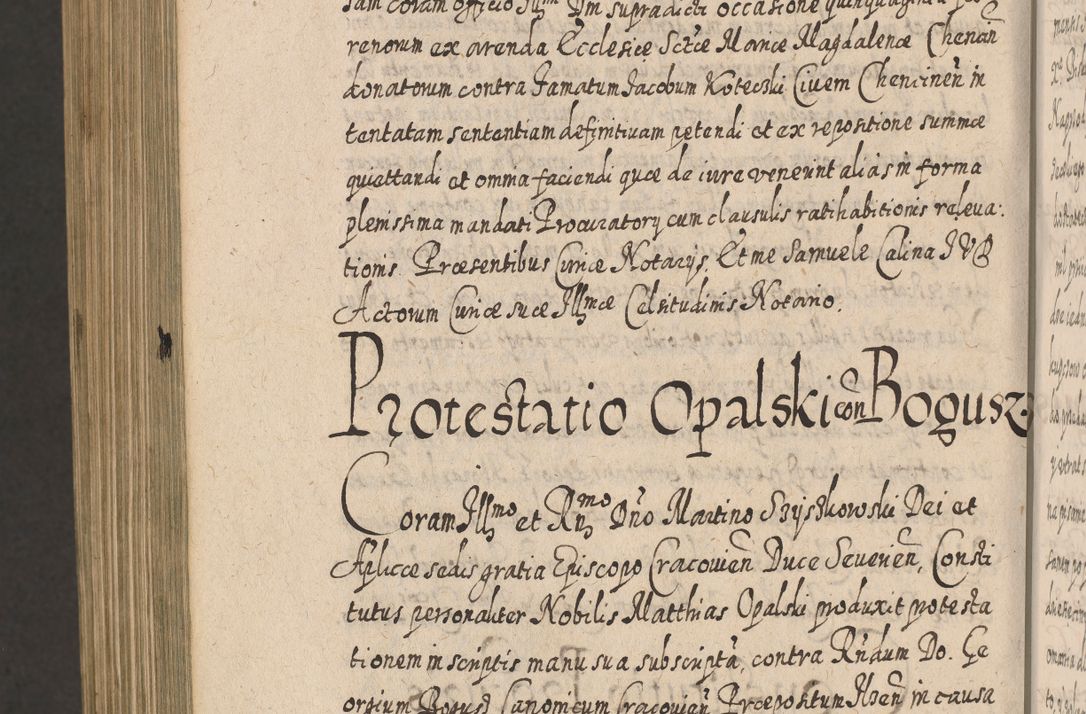 sam coram officio Illm Dm supradicti occasione quinquaginta
renorum ex arenda Ecclesiæ Sctæ Mariæ Magdalenæ Chencin
donatorum contra Famatum Jacobum Kotecski Civem Chencinen in
tentatam sententiam definitivam petendi et ex repositione summæ
quiettandi et omnia faciendi quæ de iure venerint aliàs in forma
plenissima mandati Procuratorÿ cum clausulis ratihabitionis releva:
tionis. Præsentibus Curiæ Notarÿs. Et me Samuele Calina JVD
Actorum Curiæ suæ Illmæ Celsitudinis Notario.
Protestatio Opalski con Bogusz.
Coram Illmo et Rndmo Dño Martino Szÿszkowski Dei et
Aplicæ sedis gratia Episcopo Cracovien Duce Severien, Consti
tutus personaliter Nobilis Matthias Opalski produxit protesta
tionem in scriptis manu sua subscriptã, contra Rndum Do. Ge
orgium Bogusz Canonicum Cracovien Præpositum in causa